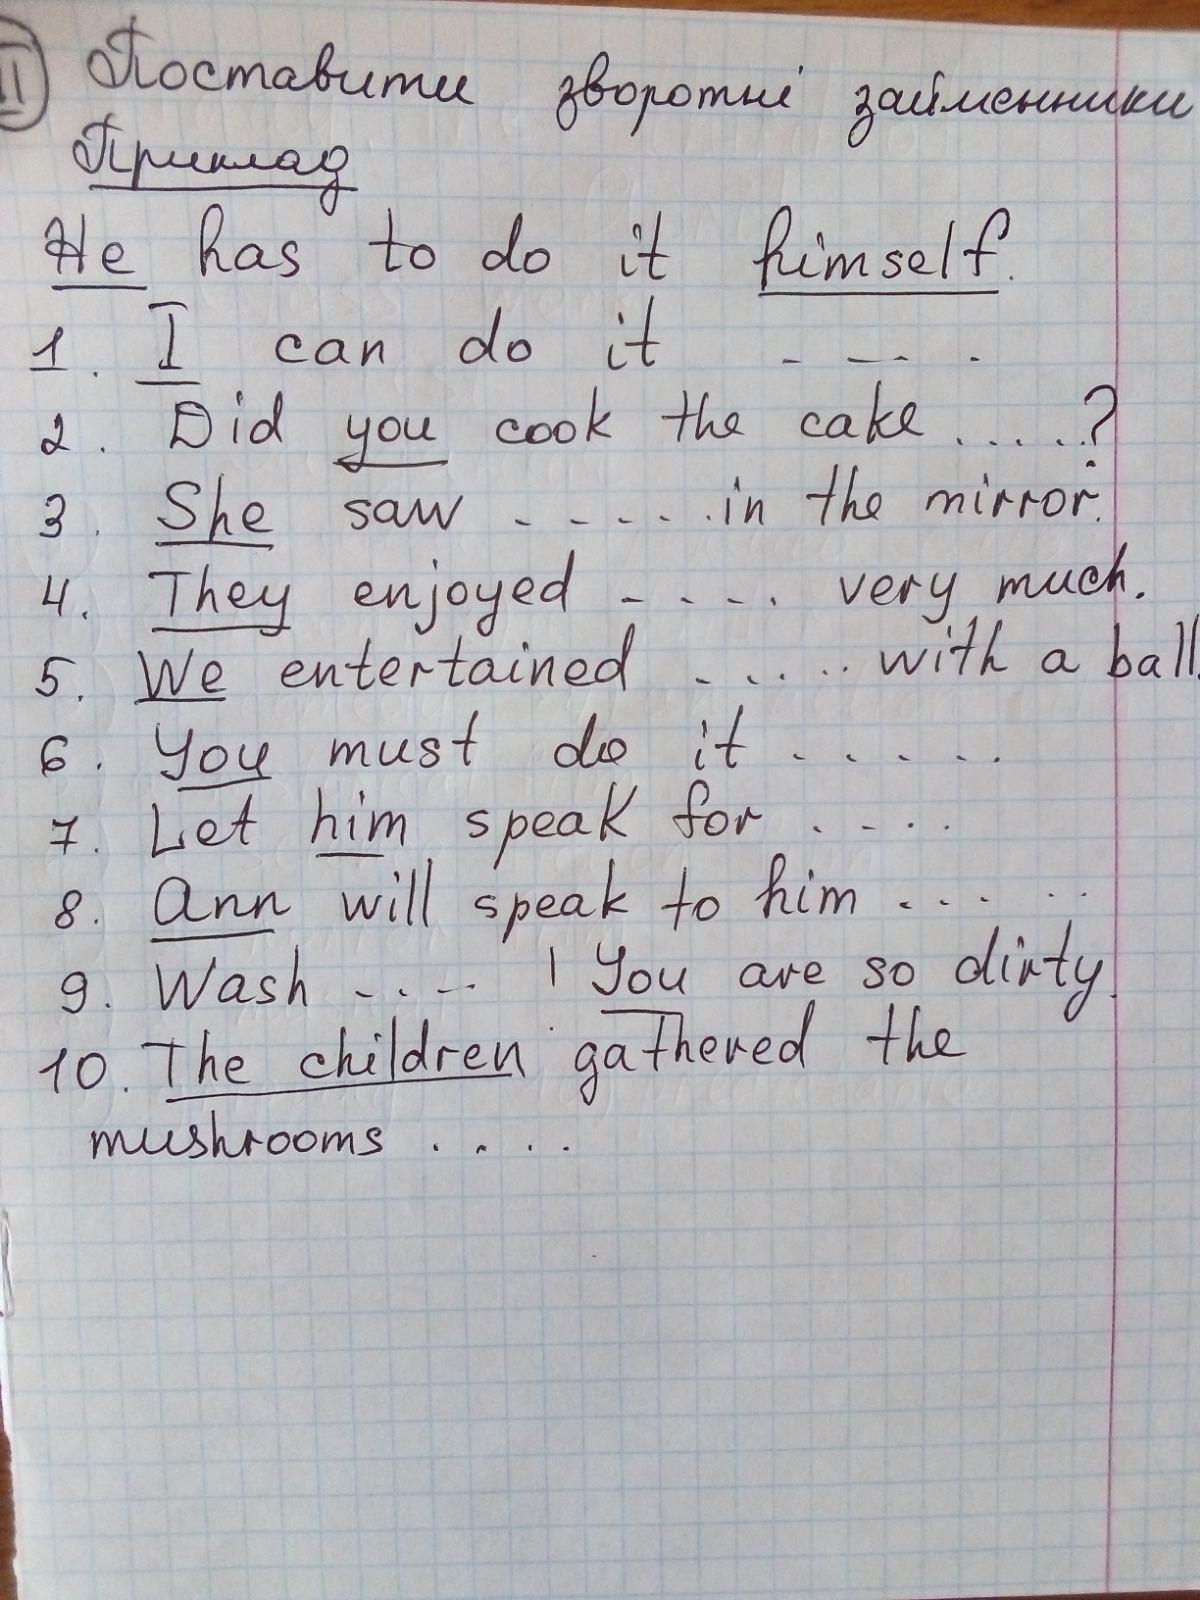 II Поставити зворотні займенники
Приклад
He has to do it himself.
1. I can do it - - - .
2. Did you cook the cake .....?
3. She saw - - - - . . in the mirror.
4. They enjoyed - - - - . very much.
5. We entertained - . . . . . with a ball.
6. You must do it . - - . . .
7. Let him speak for . - - . .
8. Ann will speak to him - - . - . .
9. Wash - - . - - ! You are so dirty.
10. The children gathered the
mushrooms . . . . .